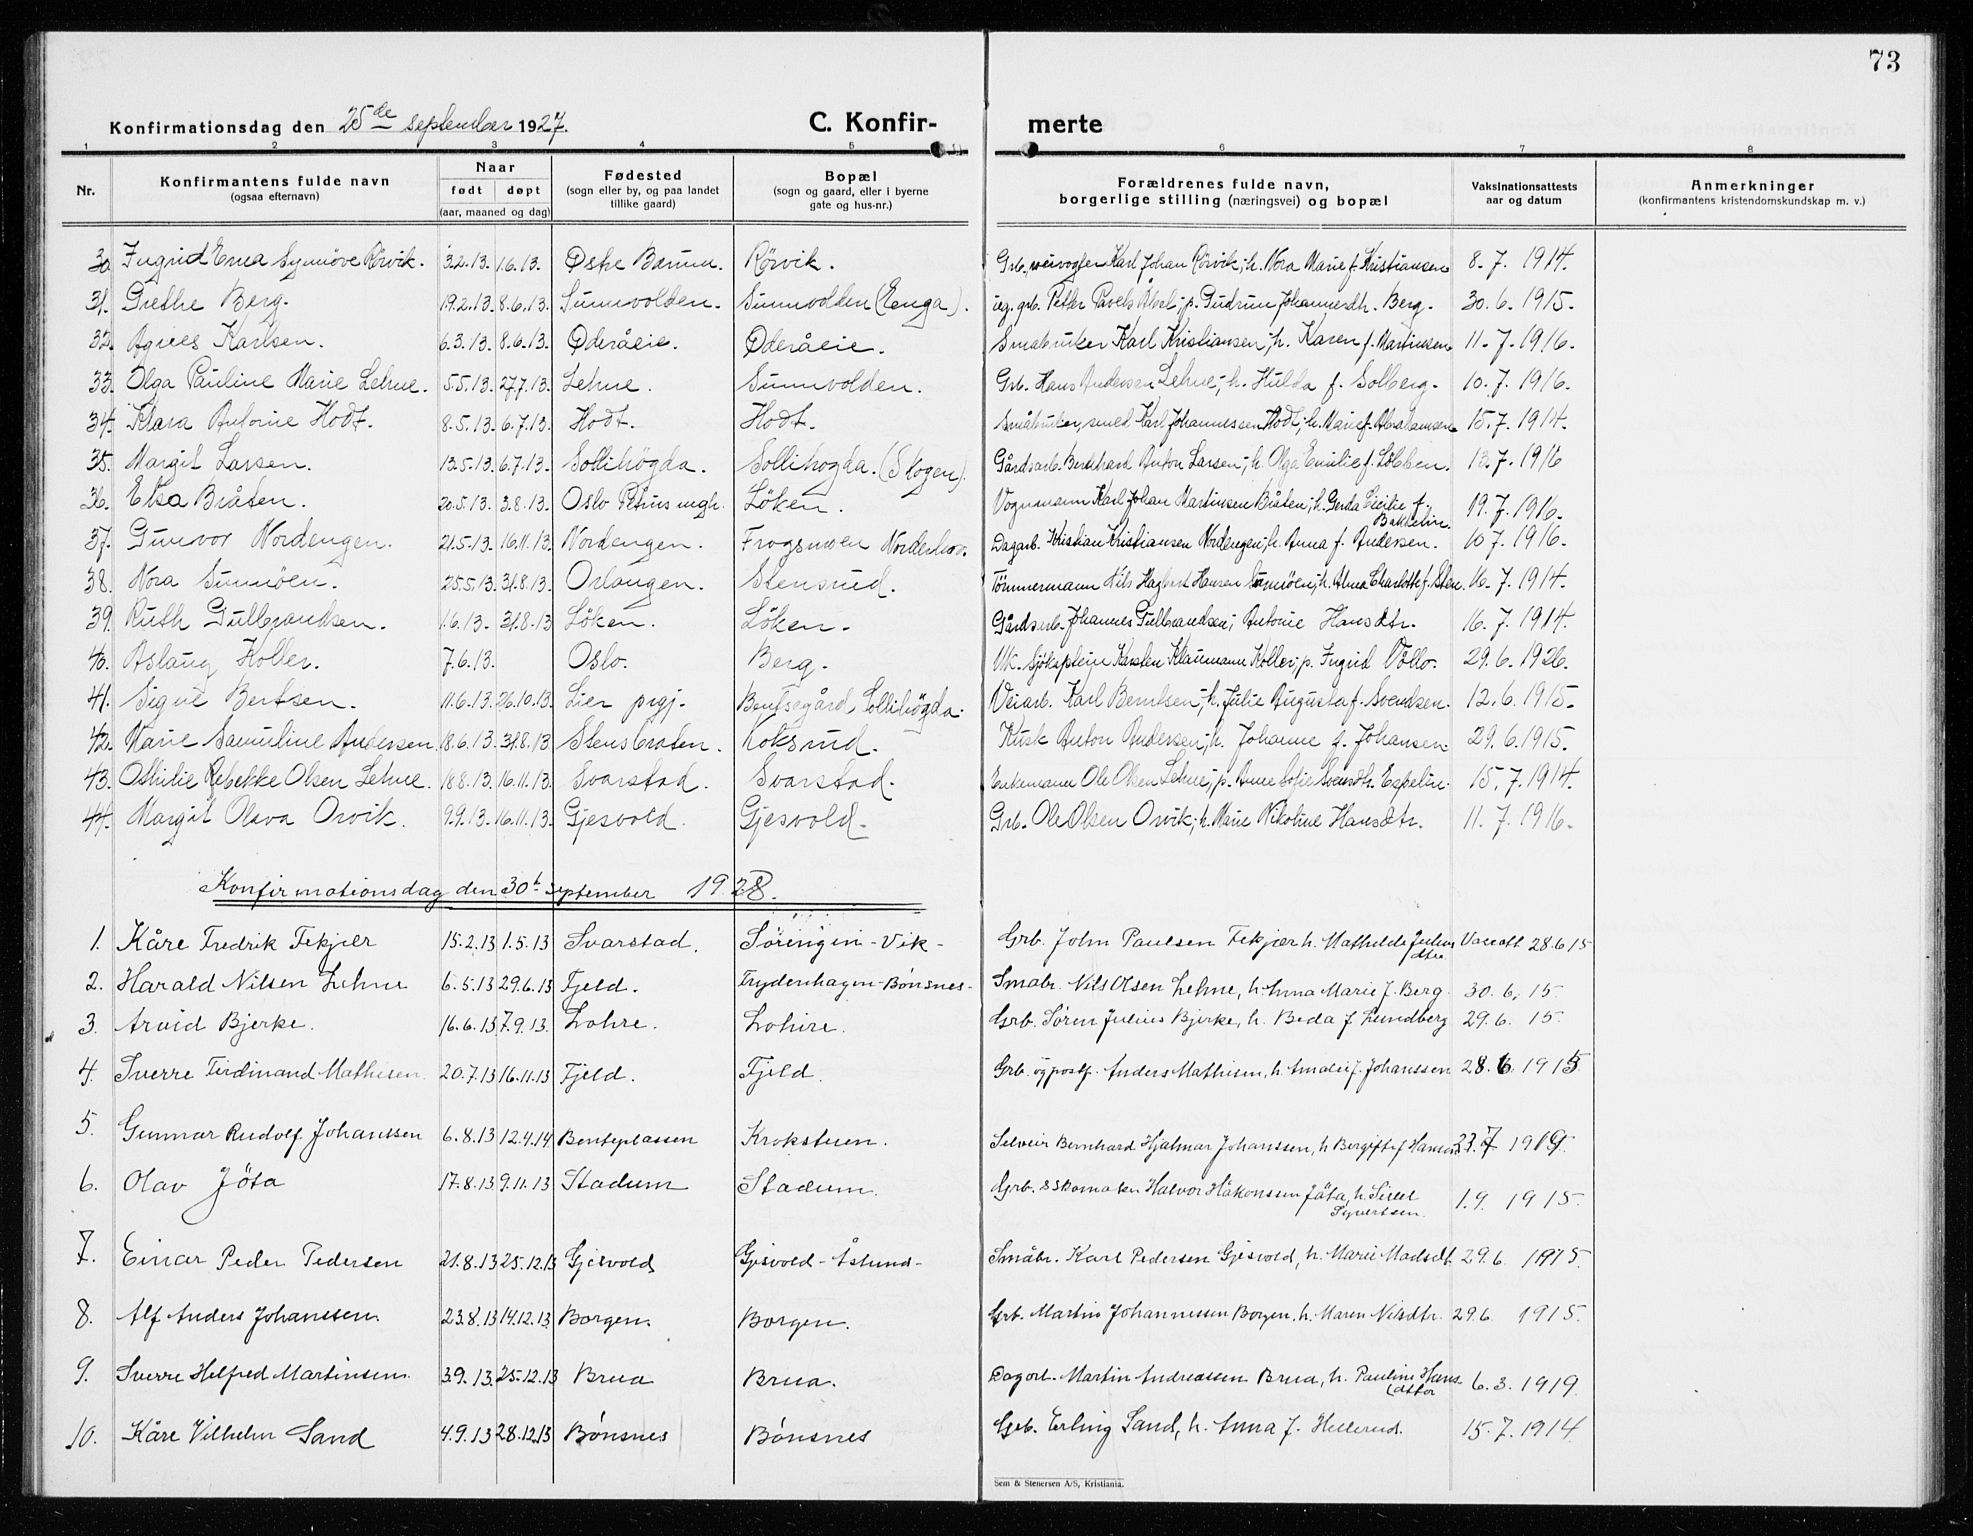 73
Konfirmationsdag den 25de september 1927. C. Konfir- merte
1 2 3 4 5 6 7 8
Nr. Konfirmantens fulde navn (ogsaa efternavn) Naar født døpt (aar, maaned og dag) Fødested (sogn eller by, og paa landet tillike gaard) Bopæl (sogn og gaard, eller i byerne gate og hus-nr.) Forældrenes fulde navn, borgerlige stilling (næringsvei) og bopæl Vaksinationsattests aar og datum Anmerkninger (konfirmantens kristendomskundskap m. v.)
30 Ingrid Erna Synnöve Rörvik. 3.2.13. 1.6.13. Østre Bærum. Rörvik. Grb, veivogter Karl Johan Rörvik; h. Nora Marie f. Kristiansen 8. 7. 1914.
31. Grethe Berg. 19.2.13 8.6.13. Sunnvolden. Sunnvolden (Enga). ug. grb. Petter Pavels Åbel; p. Gudrun Johannesdtr. Berg. 30. 6. 1915.
32. Agnes Karlsen. 6.3.13. 8.6.13. Øderåeie. Øderåeie. Småbruker Karl Kristiansen; h. Karen f. Martinsen 11. 7. 1916.
33. Olga Pauline Marie Lehne. 5.5.13. 27.7.13. Lehne. Sunnvolden. Grb. Hans Andersen Lehne; h. Hulda f. Solberg. 10. 7. 1916.
34. Klara Antonie Hodt. 8.5.13. 6.7.13. Hodt. Hodt. Småbruker, smed Karl Johannessen Hodt; h. Marie f. Abrahamsen 15. 7. 1914.
35. Margit Larsen. 13.5.13. 6.7.13. Sollihögda. Sollihögda. (Skogen) Gårdsarb. Bernhard Anton Larsen; h. Olga Emilie f. Löbben. 13. 7. 1916
36. Elsa Bråten. 20.5.13. 3.8.13. Oslo Petrus mgh. Löken. Vognmann Karl Johan Martinsen Bråten; h. Gerda Cecilie f. Bakkelin. 19. 7. 1916.
37. Gunvor Nordengen. 21.5.13. 16.11.13. Nordengen. Frogsmoen Norderhov. Dagarb. Kristian Kristiansen Nordengen; h. Anna f. Andersen. 10 7. 1916.
38. Nora Sunnöen. 25.5.13. 31.8.13. Orlaugen. Stensrud. Tömmermann Nils Hagbart Hansen Sunnöen; h. Alma Charlotte f. Sten. 16. 7. 1914.
39. Ruth Gulbrandsen. 1.6.13. 31.8.13 Löken. Löken. Gårdsarb. Johannes Gulbrandsen; Antonie Hansdtr. 16. 7. 1914.
40. Aslaug Holler. 7.6.13. Oslo. Berg. Uk. Sjökaptein Karsten Klaumann Holler; p. Ingrid Vollo. 29. 6. 1926.
41. Signe Berntsen. 11.6.13. 26.10.13. Lier prgj. Bentsegård Sollihögda. Veiarb. Karl Berntsen; h. Julie Augusta f. Svendsen. 12. 6. 1915.
42. Marie Samuline Andersen 18.6.13. 31.8.13. Stensbraten. Loksrud. Kusk Anton Andersen; h. Johanne f. Johansen 29. 6. 1915.
43. Othilie Rebekke Olsen Lehne. 18.8.13. 16.11.13. Svarstad. Svarstad. Enkemann Ole Olsen Lehne; p. Anne Sofie Svensdtr. Espelin. 15. 7. 1914.
44. Margit Olava Orvik. 9.9.13. 16.11.13. Gjesvold. Gjesvold. Grb. Ole Olsen Orvik; h. Marie Nikoline Hansdtr. 11. 7. 1916.
Konfirmationsdag den 30t september 1928.
1. Kåre Fredrik Fekjær 15.2.13 1.5.13 Svarstad. Sörengen - Vik - Grb. John Paulsen Fekjær h. Mathilde Juliusdtr Vac.att 28.6 15
2. Harald Nilsen Lehne 6.5.13 29.6.13 Fjeld. Frydenhagen - Bönsnes - Småbr. Nils Olsen Lehne, h. Anna Marie f. Berg. 30. 6. 15.
3. Arvid Bjerke. 16.6.13 7.9.13. Lohre. Lohre. Grb. Sören Julius Bjerke, h. Beda f Lundberg 29. 6. 15.
4. Sverre Ferdinand Mathisen. 20.7.13 16.11.13 Fjeld. Fjeld. Grb. og postf. Anders Mathisen, h. Amalie f. Johanssen 28. 6. 1915
5. Gunnar Rudolf Johanssen 6.8.13 12.4.14 Benteplassen Krokstuen. Selveier Bernhard Hjalmar Johanssen, h Bergitte f Hansen 23. 7 1919.
6. Olav Jöta 17.8.13 9.11.13 Stadum Stadum. Grb. & Skomaker Halvor Håkonssen Jöta, h. Sissel Syvertsen. 1.9. 1915.
7. Einar Peder Pedersen 21.8.13 25.12.13 Gjesvold Gjesvold - Åslund - Småbr. Karl Pedersen Gjesvold, h. Marie Madsdt. 29. 6. 1915.
8. Alf Anders Johanssen. 23.8.13 14.12.13. Borgen. Borgen. Grb. Martin Johannessen Borgen. h. Maren Nilsdtr. 29.6. 1915.
9. Sverre Helfred Martinsen. 3.9.13. 25.12.13 Brua Brua. Dagarb. Martin Andreassen Brua, h. Pauline Hansdtter 6. 3. 1919.
10. Kåre Vilhelm Sand 4.9.13 28.12.13 Bönsnes Bönsnes Grb. Erling Sand, h. Anna f. Hellerud. 15. 7. 1914
Sem & Stenersen A/S, Kristiania.